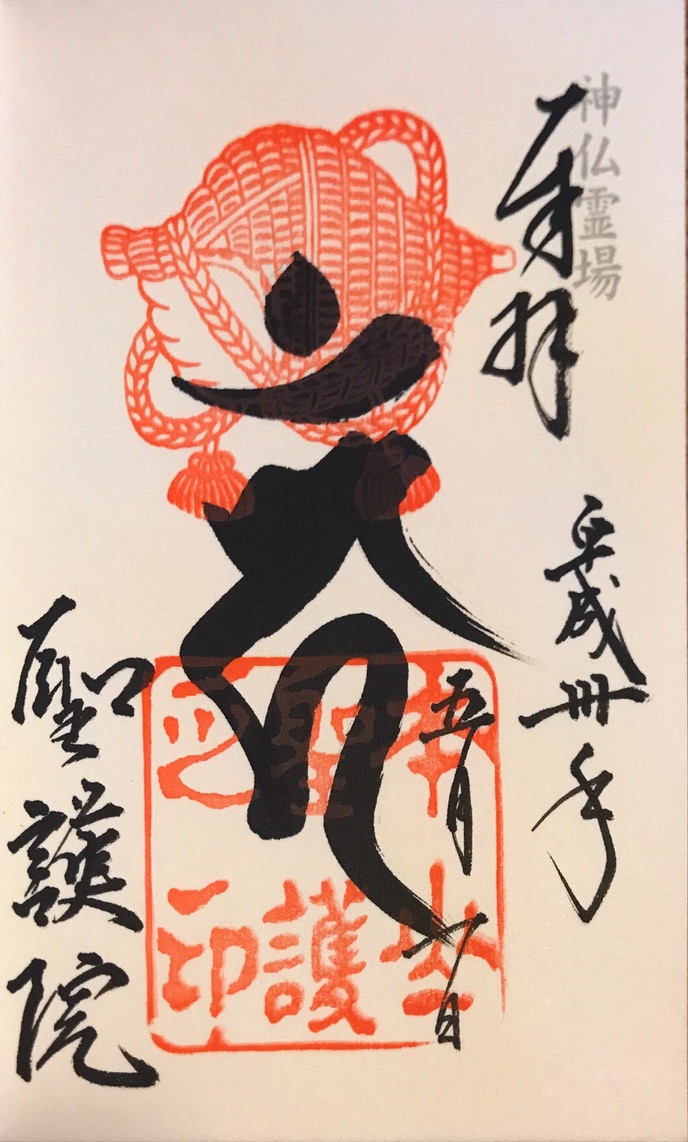 神仏霊場
奉拝
平成卅年
五月
本山
聖護
之印
聖護院